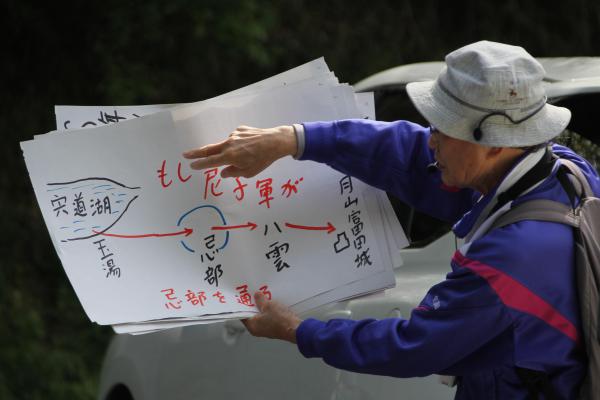 もし 尼子軍が
宍道湖
玉湯
忌部
八雲
月山富田城
忌部を通る